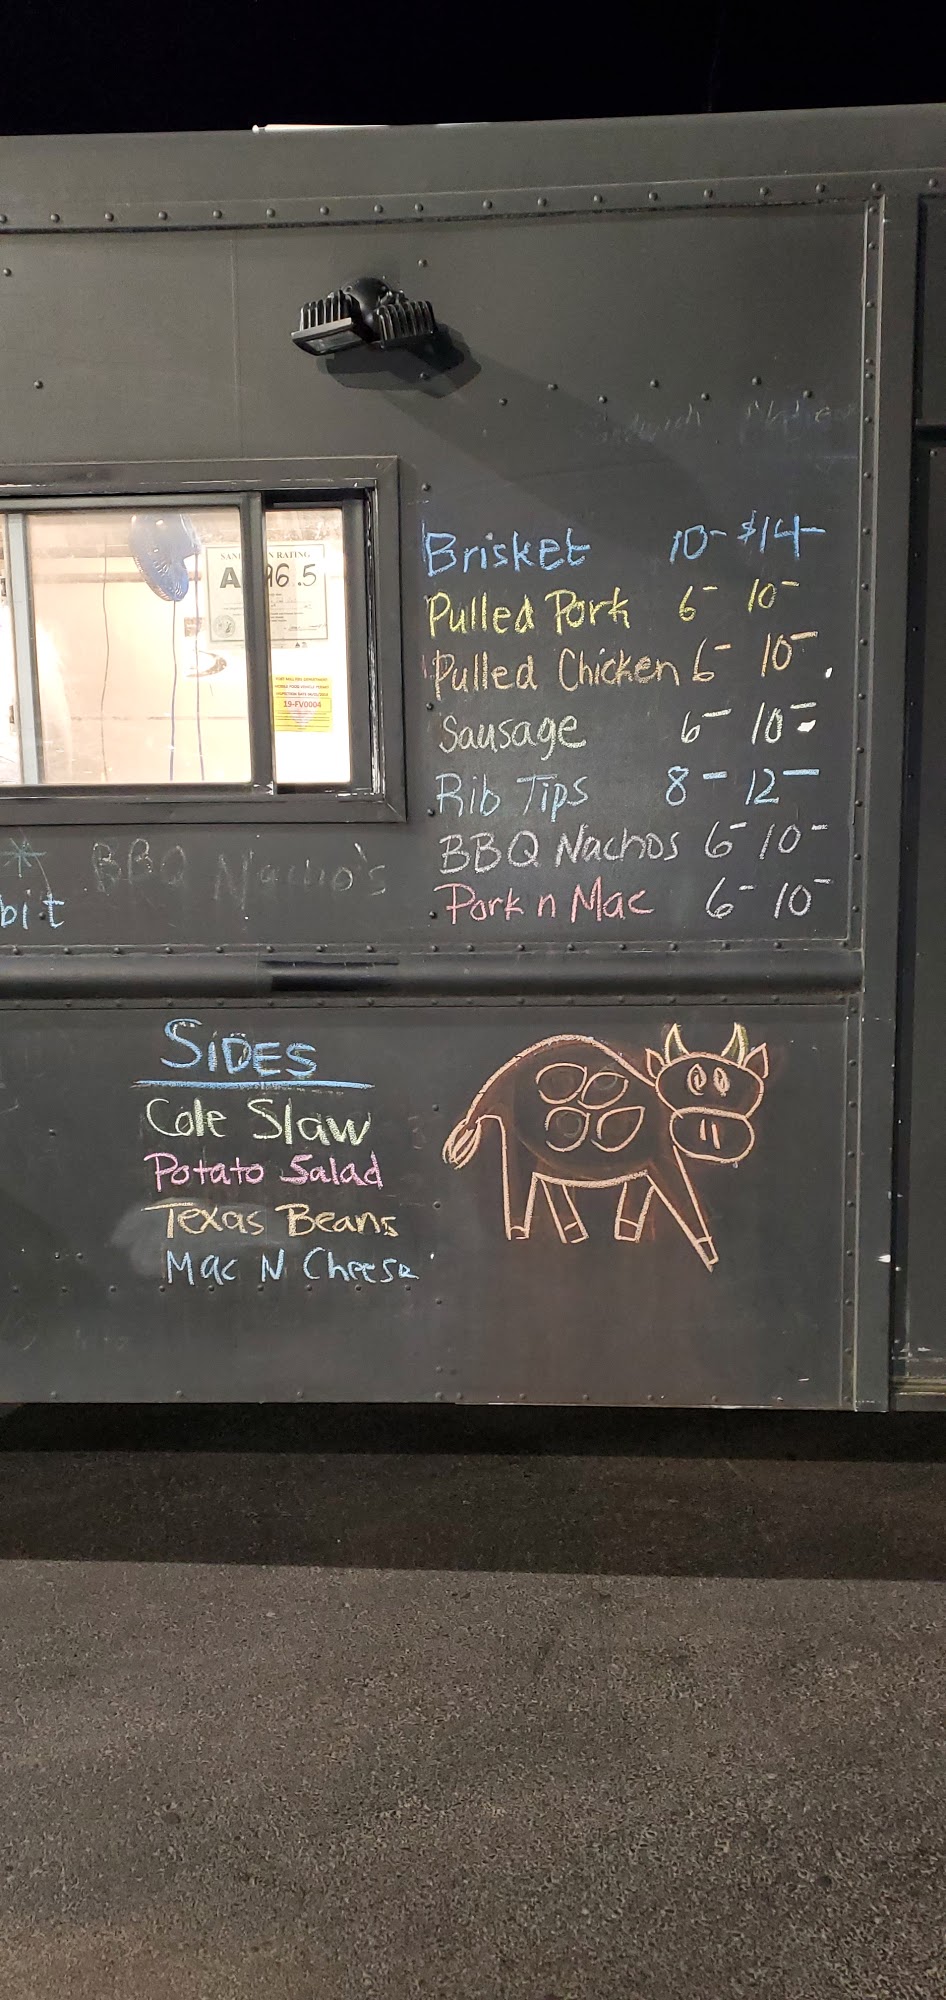 Sandwich Platter
Brisket 10- $14-
Pulled Pork 6- 10-
Pulled Chicken 6- 10-
Sausage 6- 10-
Rib Tips 8- 12-
BBQ Nachos 6- 10-
Pork n Mac 6- 10-
A 96.5
19-FV0004
BBQ Nacho's
bit
SIDES
Cole Slaw
Potato Salad
Texas Beans
Mac N Cheese